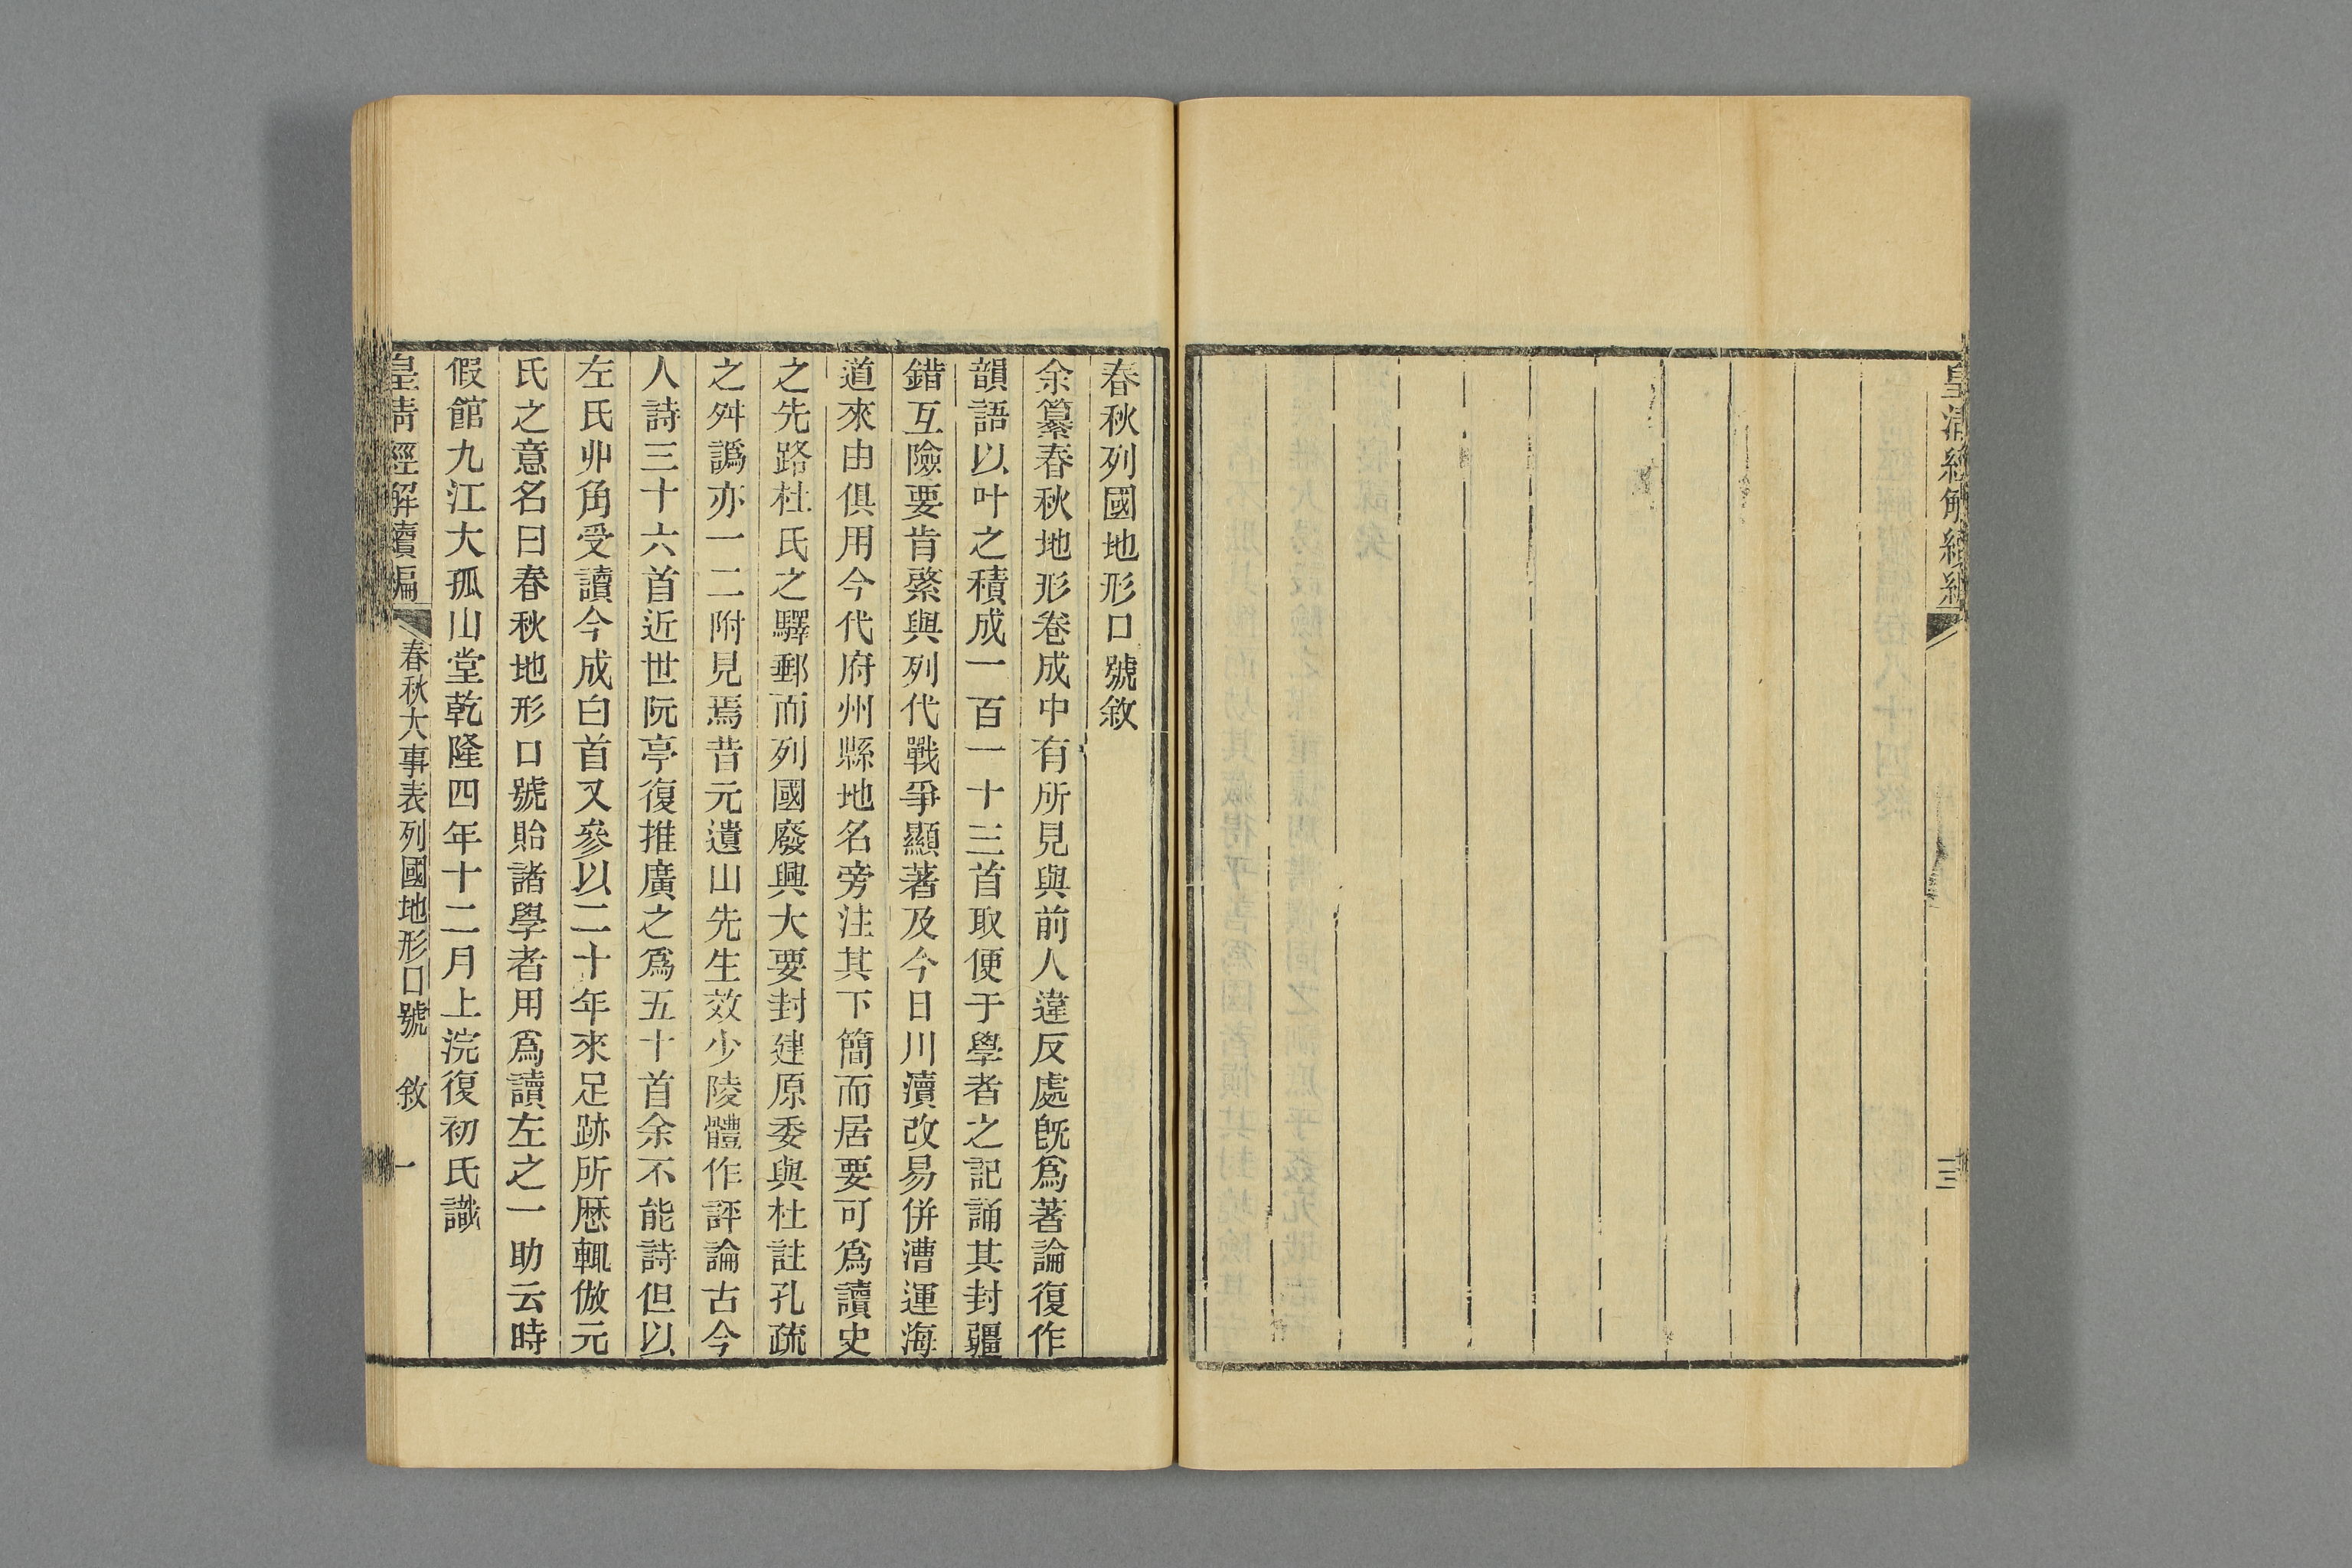 皇清經解續編
三
春秋列國地形口號敘
余纂春秋地形卷成中有所見與前人違反處旣爲著論復作
韻語以叶之積成一百一十三首取便于學者之記誦其封疆
錯互險要肯綮與列代戰爭顯著及今日川瀆改易併漕運海
道來由俱用今代府州縣地名旁注其下簡而居要可爲讀史
之先路杜氏之驛郵而列國廢興大要封建原委與杜註孔疏
之舛譌亦一二附見焉昔元遺山先生效少陵體作評論古今
人詩三十六首近世阮亭復推廣之爲五十首余不能詩但以
左氏丱角受讀今成白首又參以二十年來足跡所歷輒倣元
氏之意名曰春秋地形口號貽諸學者用爲讀左之一助云時
假館九江大孤山堂乾隆四年十二月上浣復初氏識
皇清經解續編 春秋大事表列國地形口號 敘 一